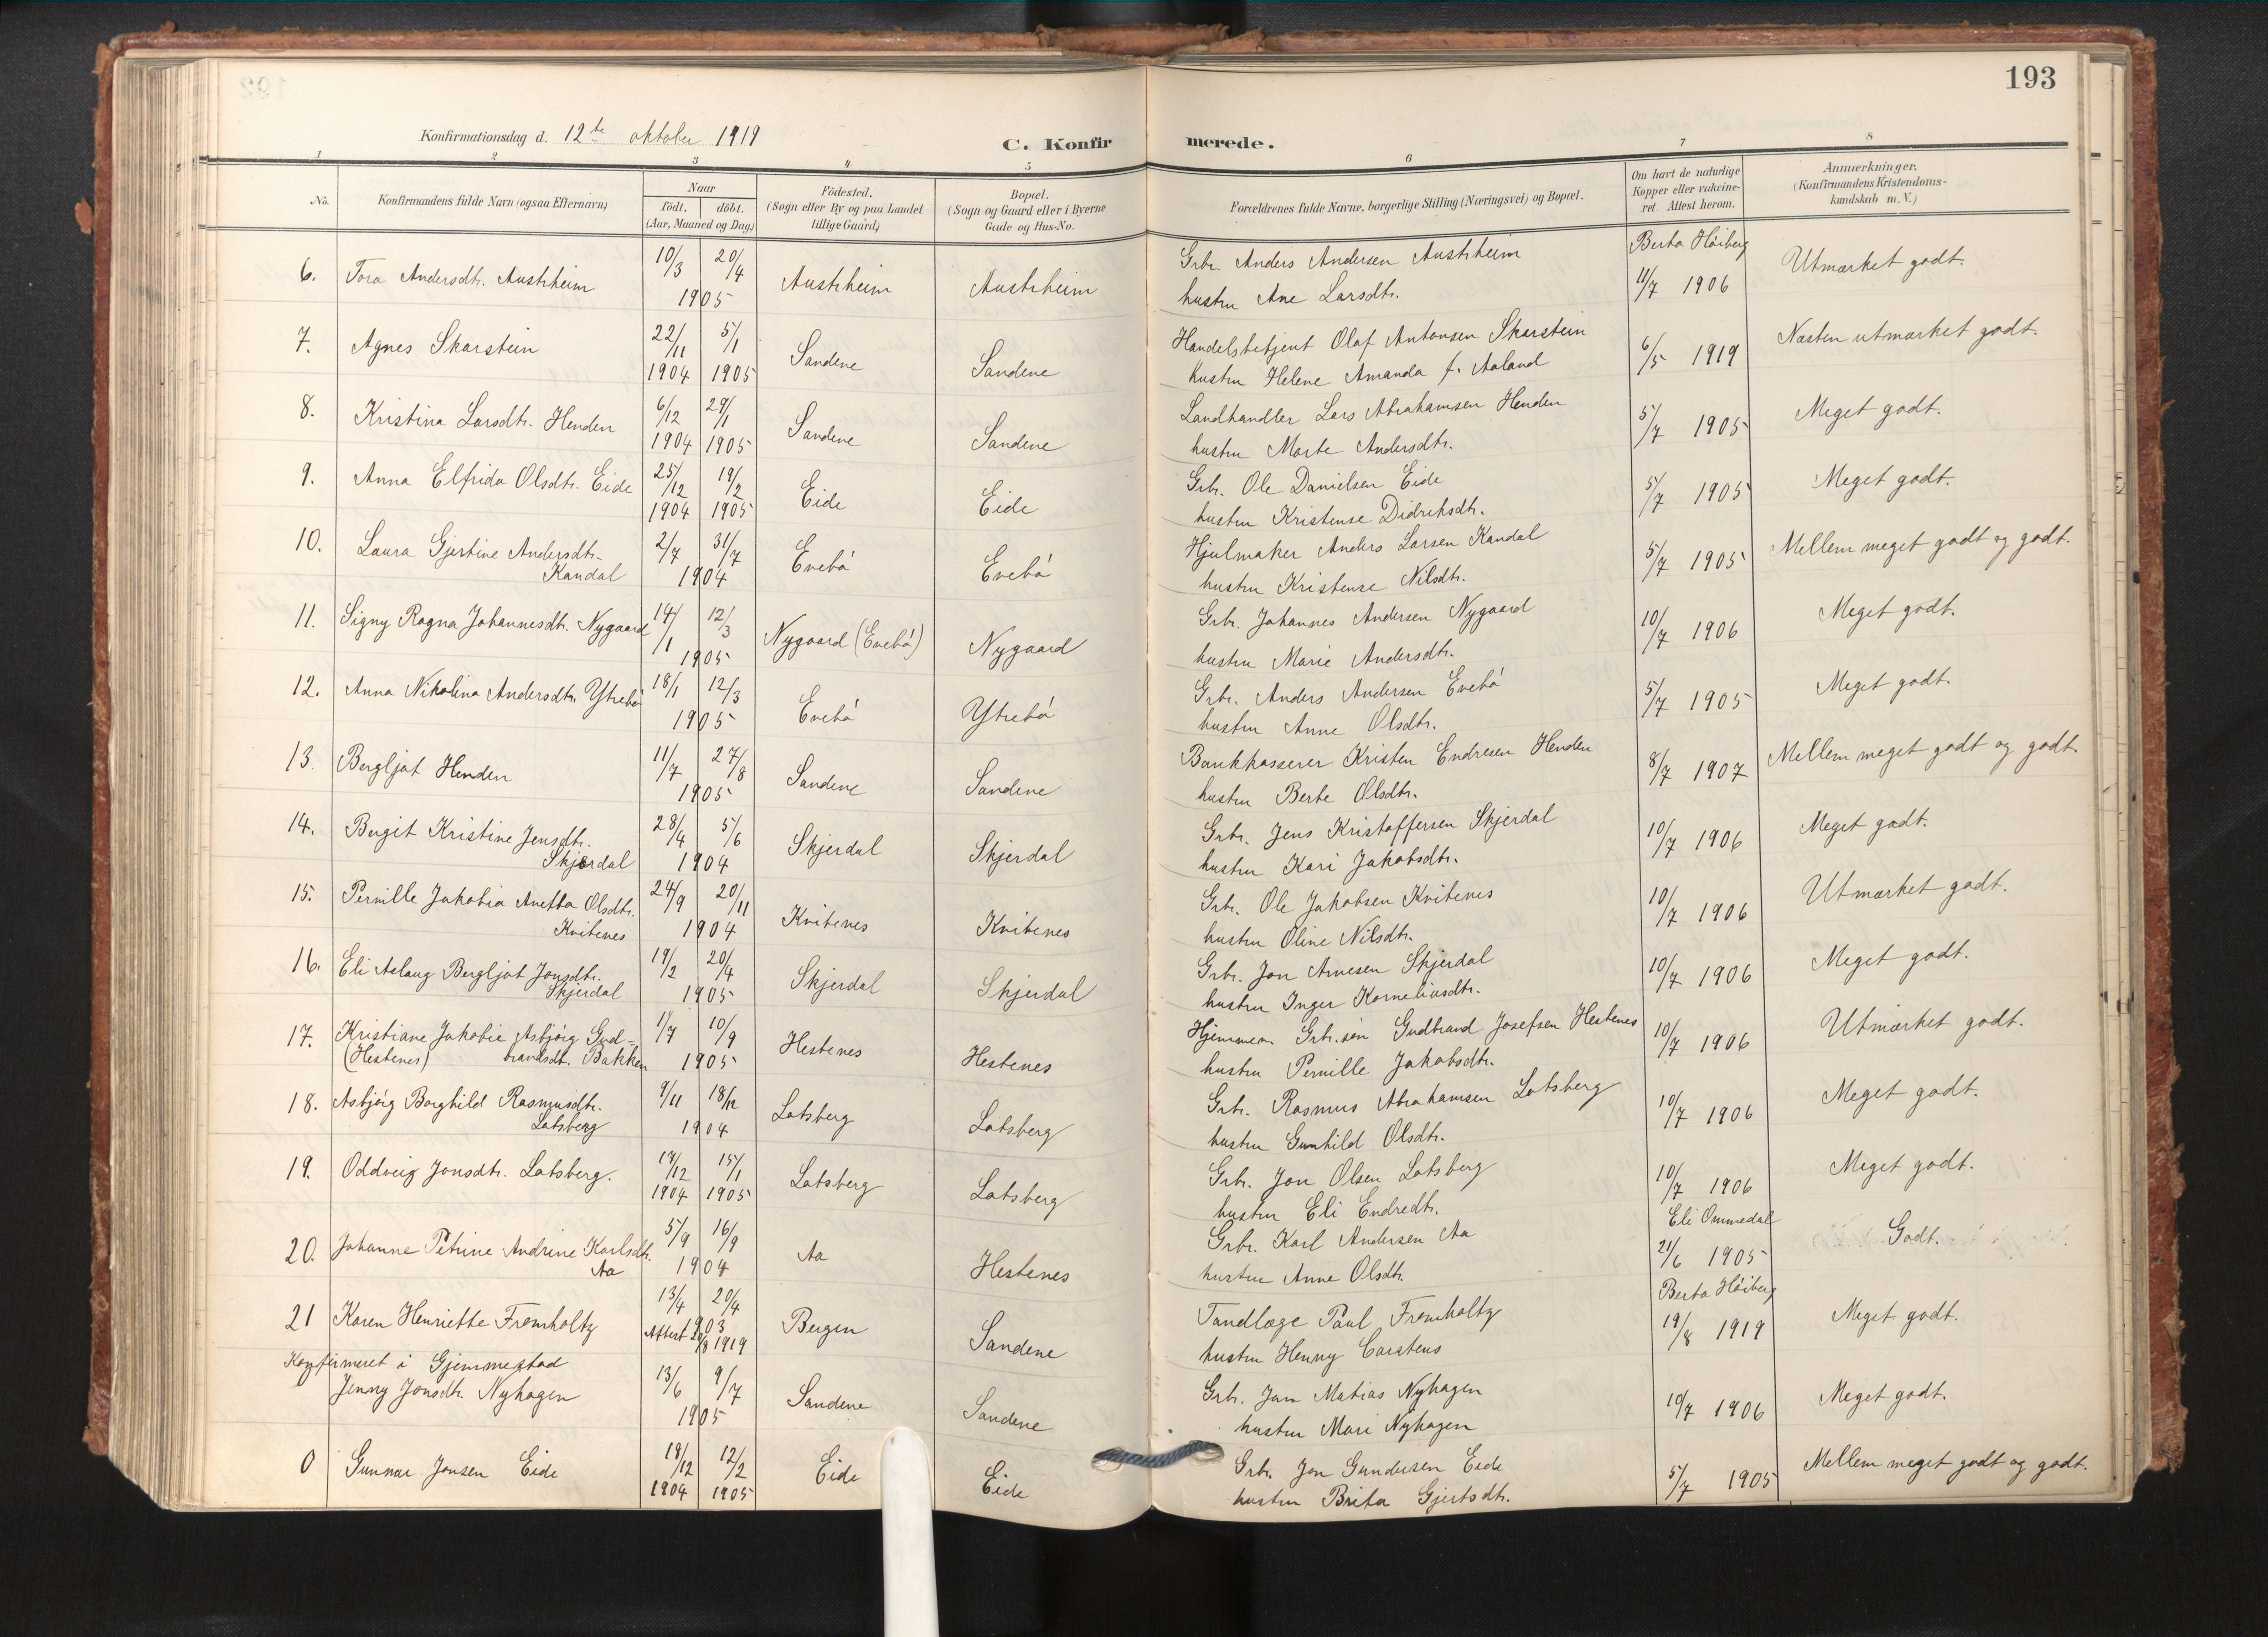 193
Konfirmationsdag d. 12te oktober 1919
C. Konfirmerede.
1 2 3 4 5 6 7 8
No.
Konfirmandens fulde Navn (ogsaa Efternavn)
Naar
født. døbt.
(Aar, Maaned og Dag)
Fødested.
(Sogn eller By og paa Landet
tillige Gaard)
Bopæl.
(Sogn og Gaard eller i Byerne
Gade og Hus-No.
Forældrenes fulde Navne, borgerlige Stilling (Næringsvei) og Bopæl.
Om havt de naturlige
Kopper eller vakcine-
ret. Attest herom.
Anmærkninger.
(Konfirmandens Kristendoms-
kundskab m. V.)
6. Tora Andersdtr. Austrheim 10/3 20/4 1905 Austrheim Austrheim
Grbr. Anders Andersen Austrheim
hustru Ane Larsdtr.
Berta Høiberg
11/7 1906 Utmærket godt.
7. Agnes Skarstein 22/11 1904 5/1 1905 Sandene Sandene
Handelsbetjent Olaf Antonsen Skarstein
hustru Helene Amanda f. Aaland
6/5 1919 Næsten utmærket godt.
8. Kristina Larsdtr. Henden 6/12 1904 29/1 1905 Sandene Sandene
Landhandler Lars Abrahamsen Henden
hustru Marte Andersdtr.
5/7 1905 Meget godt.
9. Anna Elfrida Olsdtr. Eide 25/12 1904 19/2 1905 Eide Eide
Grbr. Ole Danielsen Eide
hustru Kristense Didriksdtr.
5/7 1905 Meget godt.
10. Laura Gjertine Andersdtr.
Kandal 2/7 31/7 1904 Evebø Evebø
Hjulmaker Anders Larsen Kandal
hustru Kristense Nilsdtr.
5/7 1905 Mellem meget godt og godt.
11. Signy Ragna Johannesdtr. Nygaard 14/1 12/3 1905 Nygaard (Evebø) Nygaard
Grbr. Johannes Andersen Nygaard
hustru Marie Andersdtr.
10/7 1906 Meget godt.
12. Anna Nikolina Andersdtr. Ytrebø 18/1 12/3 1905 Evebø Ytrebø
Grbr. Anders Andersen Evebø
hustru Anne Olsdtr.
5/7 1905 Meget godt.
13. Bergljot Henden 11/7 27/8 1905 Sandene Sandene
Bankkasserer Kristen Endresen Henden
hustru Berte Olsdtr.
8/7 1907 Mellem meget godt og godt.
14. Bergit Kristine Jensdtr.
Skjerdal 28/4 5/6 1904 Skjerdal Skjerdal
Grbr. Jens Kristoffersen Skjerdal
hustru Kari Jakobsdtr.
10/7 1906 Meget godt.
15. Pernille Jakobia Anetta Olsdtr.
Kvitenes 24/9 20/11 1904 Kvitenes Kvitenes
Grbr. Ole Jakobsen Kvitenes
hustru Oline Nilsdtr.
10/7 1906 Utmærket godt.
16. Eli Aslaug Bergljot Jonsdtr.
Skjerdal 19/2 20/4 1905 Skjerdal Skjerdal
Grbr. Jon Arnesen Skjerdal
hustru Inger Korneliusdtr.
10/7 1906 Meget godt.
17. Kristiane Jakobie Asbjørg Gud-
(Hestenes) brandsdt. Bakken 17/7 10/9 1905 Hestenes Hestenes
Hjemmev. Grbr.søn Gudbrand Josefsen Hestenes
hustru Pernille Jakobsdtr.
10/7 1906 Utmærket godt.
18. Asbjørg Borghild Rasmusdtr.
Lotsberg 9/11 18/12 1904 Lotsberg Lotsberg
Grbr. Rasmus Abrahamsen Lotsberg
hustru Gunhild Olsdtr.
10/7 1906 Meget godt.
19. Oddveig Jonsdtr. Lotsberg. 17/12 1904 15/1 1905 Lotsberg Lotsberg
Grbr. Jon Olsen Lotsberg
hustru Eli Endredtr.
10/7 1906 Meget godt.
20. Johanne Petrine Andrine Karlsdtr.
Aa 5/9 16/9 1904 Aa Hestenes
Grbr. Karl Andersen Aa
hustru Anne Olsdtr.
Eli Ommedal
21/6 1905 Godt.
21 Karen Henriette Fromholtz 13/4 20/4 1903
Attest 20/8 1919 Bergen Sandene
Tandlæge Paul Fromholtz
hustru Henny Carstens
Berta Høiberg
19/8 1919 Meget godt.
Konfirmeret i Gjemmestad
Jenny Jonsdtr. Nyhagen 13/6 9/7 1905 Sandene Sandene
Grbr. Jon Matias Nyhagen
hustru Mari Nyhagen
10/7 1906 Meget godt.
0 Gunnar Jonsen Eide 18/12 1904 12/2 1905 Eide Eide
Grbr. Jon Gundersen Eide
hustru Brita Gjertsdtr.
5/7 1905 Mellem meget godt og godt.